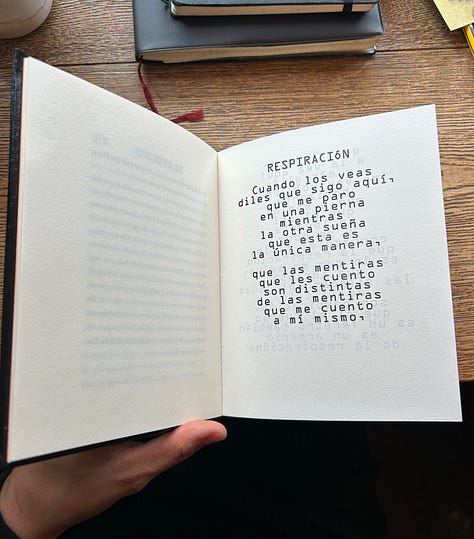 RESPIRACIÓN
Cuando los veas
diles que sigo aquí,
que me paro
en una pierna
mientras
la otra sueña
que esta es
la única manera,
que las mentiras
que les cuento
son distintas
de las mentiras
que me cuento
a mí mismo.